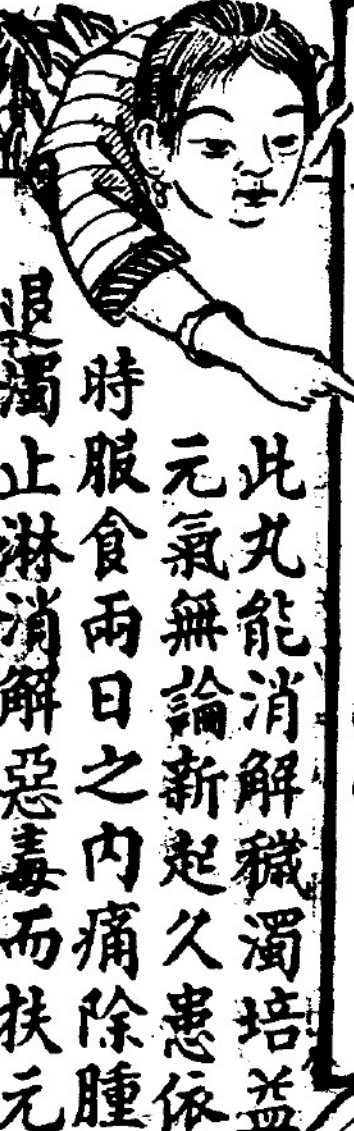 此丸能消解穢濁培益
元氣無論新起久患依
時服食兩日之内痛除腫
退濁止淋消解惡毒而扶元